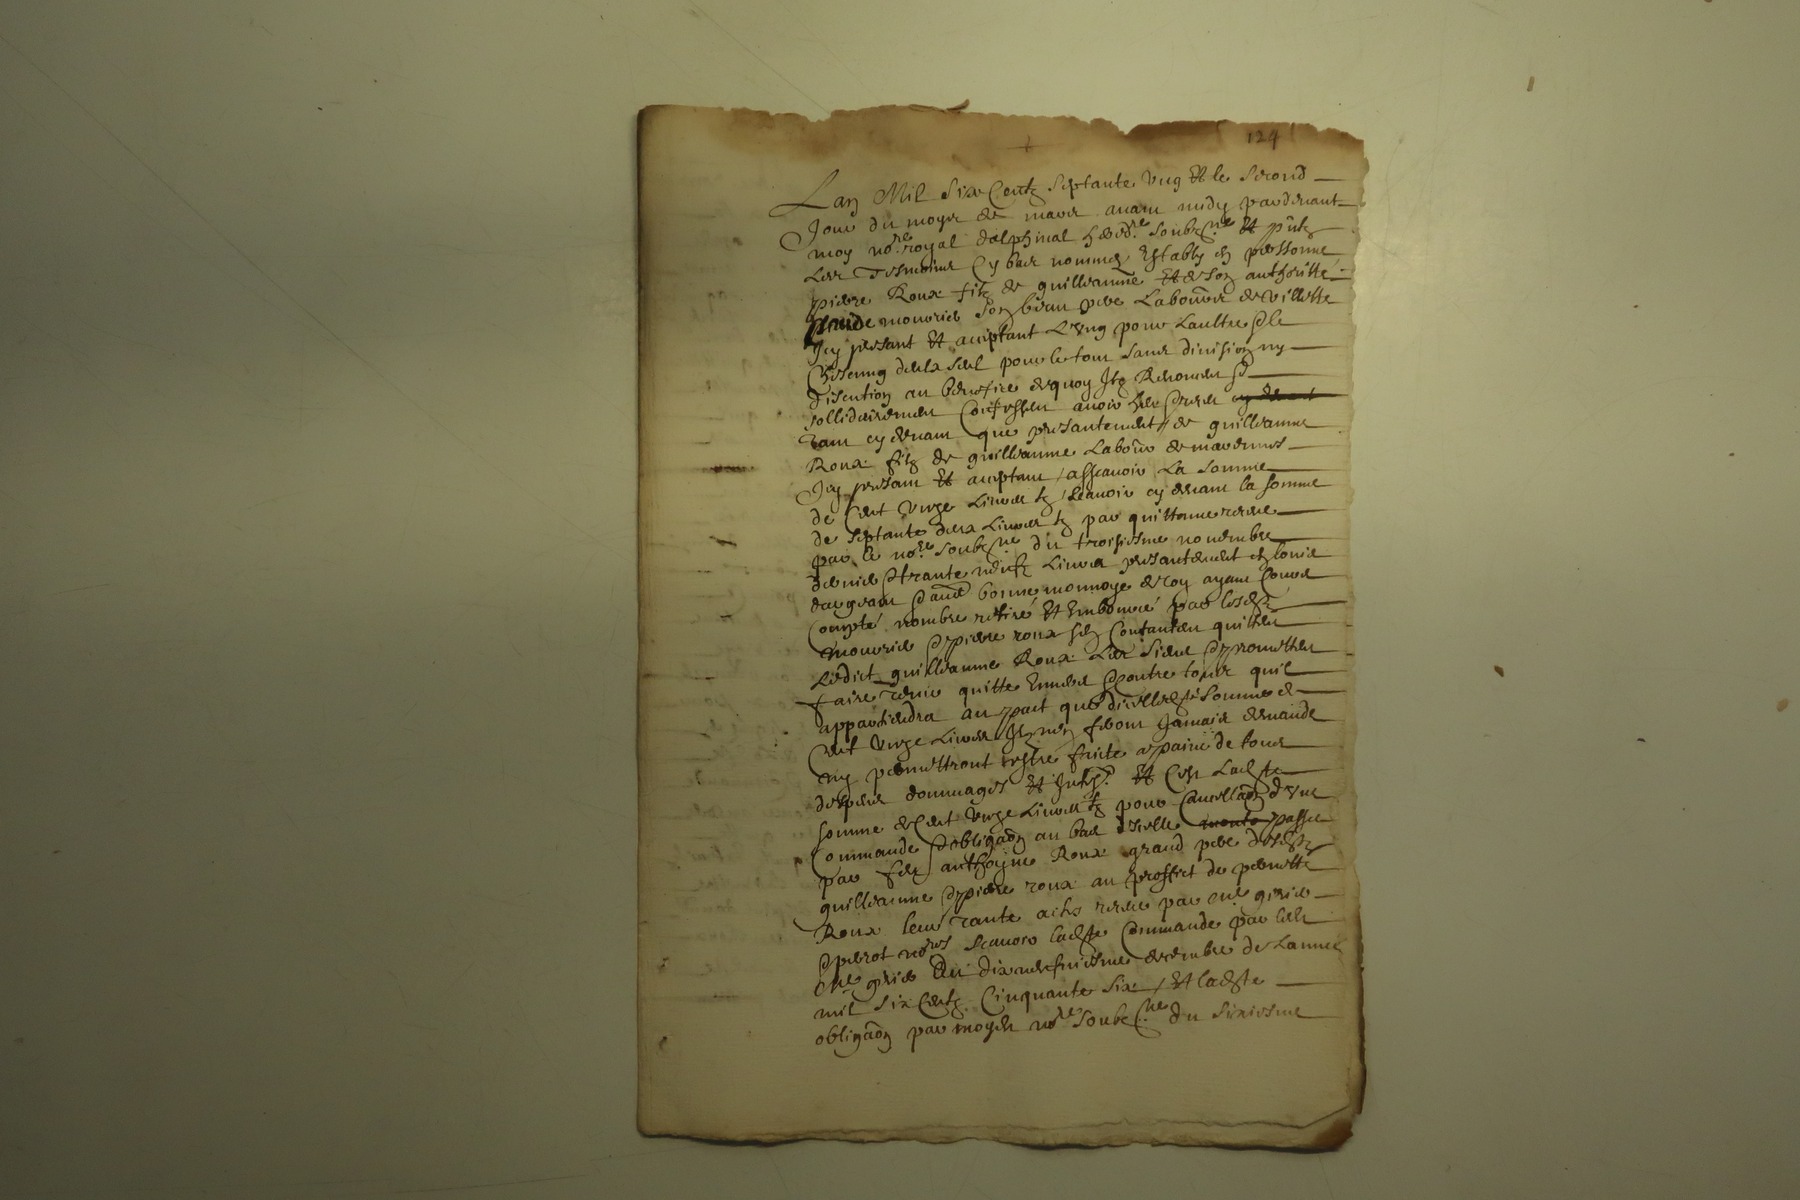 124
Lan Mil Six Centz Septante Ung Et le Second
Jour du moys de mars avant midy pardevant
moy nore royal dalphinal heredre soubzne Et pntz
Les Tesmoins Cy bas nommez Estably en personne
pierre Roux filz de guilleaume Et de son authoritté
Claude mouries son beau pere Laboureur de villette
Icy presant Et acceptant L'ung pour Laultre
Chescung deulx seul pour le tout sans division ny
discution au beneffice de quoy Ilz Renoncent
sollidairement Confessent avoir heu
tant cy devant que presantement de guilleaume
Roux filz de guilleaume Labour de
Icy presant Et acceptant / assavoir La somme
de Cent Unze Livres tz / scavoir cy devant la somme
de septante deux Livres tz par quittance receue
par le nore soubzne du troisiesme novembre
dernier trante neufz Livres presantement en louis
dargeant bonne monnoye de roy ayant Cours
Compté nombre retiré Et Emboursé par lesdz
mouries pierre roux sen Contantent quittent
Ledict guilleaume Roux Les siens promettent
faire tenir quitte Envers Contre tous quil
appartiendra au part que dicelle somme de
Cent Unze Livres Ilz nen feront Jamais demande
ny permettront estre faite a paine de tous
despens dommages Et Et Cest
somme de Cent Unze Livres tz pour Cancellaon d'une
Commande obligaon au bas d'icelle passée
par feu anthoyne Roux grand pere desdz
guilleaume pierre roux au proffict de pernette
Roux leur tante actes receus par
perrot nores scavoir Commande par
Me du dix neufviesme decembre de Lannee
mil six Centz Cinquante six / Et
obligaon par moydt nore soubzne du sixiesme